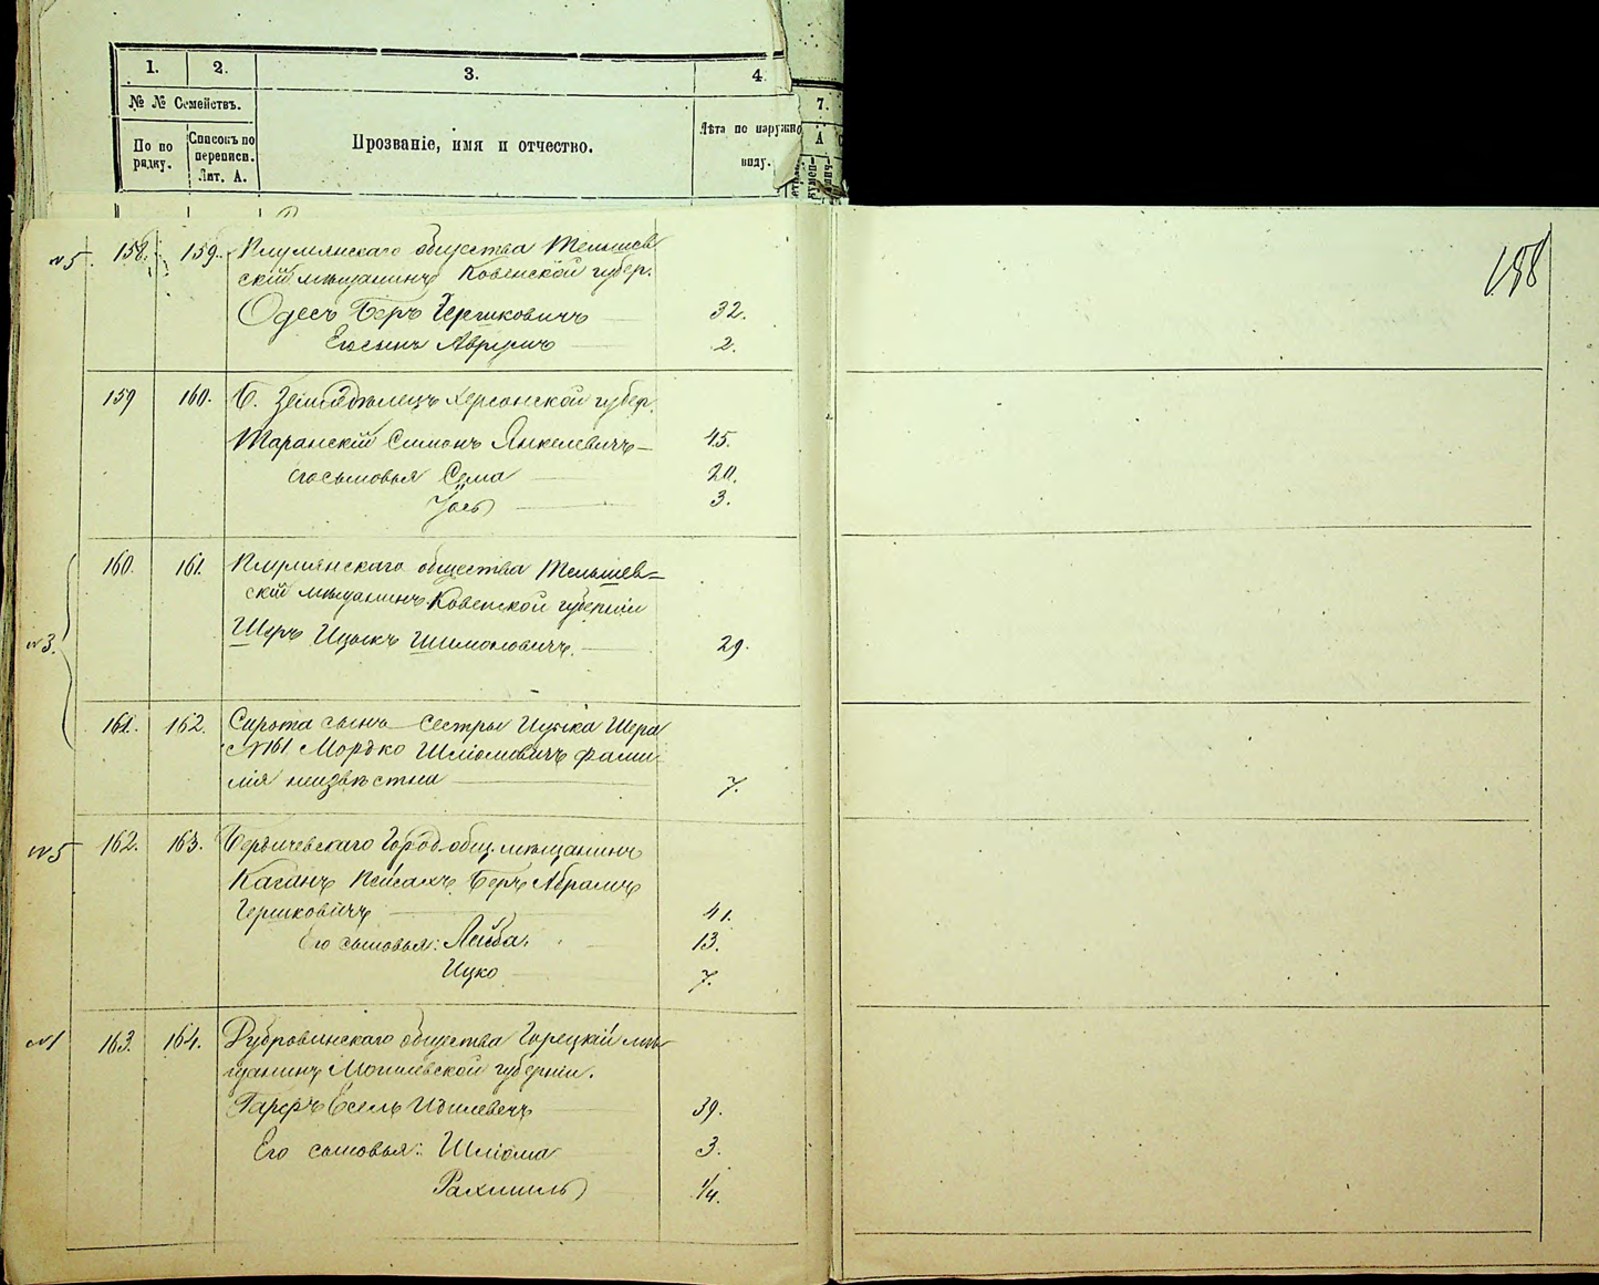 1. 2. 3. 4.
№ № Семействъ.
По по рядку.
Списокъ по переписи. Лит. А.
Прозваніе, имя и отчество.
Лѣта по наружно виду.
7.
А
158
№5. 158. 159. общества Тельшев
скій мѣщанинъ Ковенской губер.
Одесъ Беръ Гершковичъ 32.
Его сынъ Аврумъ 2.
159 160. Б. Земледѣлецъ Херсонской губер.
Таранскій Симонъ Янкелевичъ 45.
его сыновья Сема 20.
3.
160. 161. общества Тельшев=
скій мѣщанинъ Ковенской губерніи
№3. Шеръ Ицыкъ Шимоновичъ. 29.
161. 162. Сирота сынъ сестры Ицыка Шера
№161 Мордко Шліомовичъ фами
лія неизвѣстна 7.
№5 162. 163. Бердичевскаго Город. общ. мѣщанинъ
Каганъ Пейсахъ Беръ Абрамъ
Гершковичъ 41.
Его сыновья: Лейба. 13.
Ицко 7.
№1 163. 164. Дубровинскаго общества Горецкій мѣ
щанинъ Могилевской губерніи.
Іосель 39.
Его сыновья: Шліома 3.
Рахмиль 1/4.